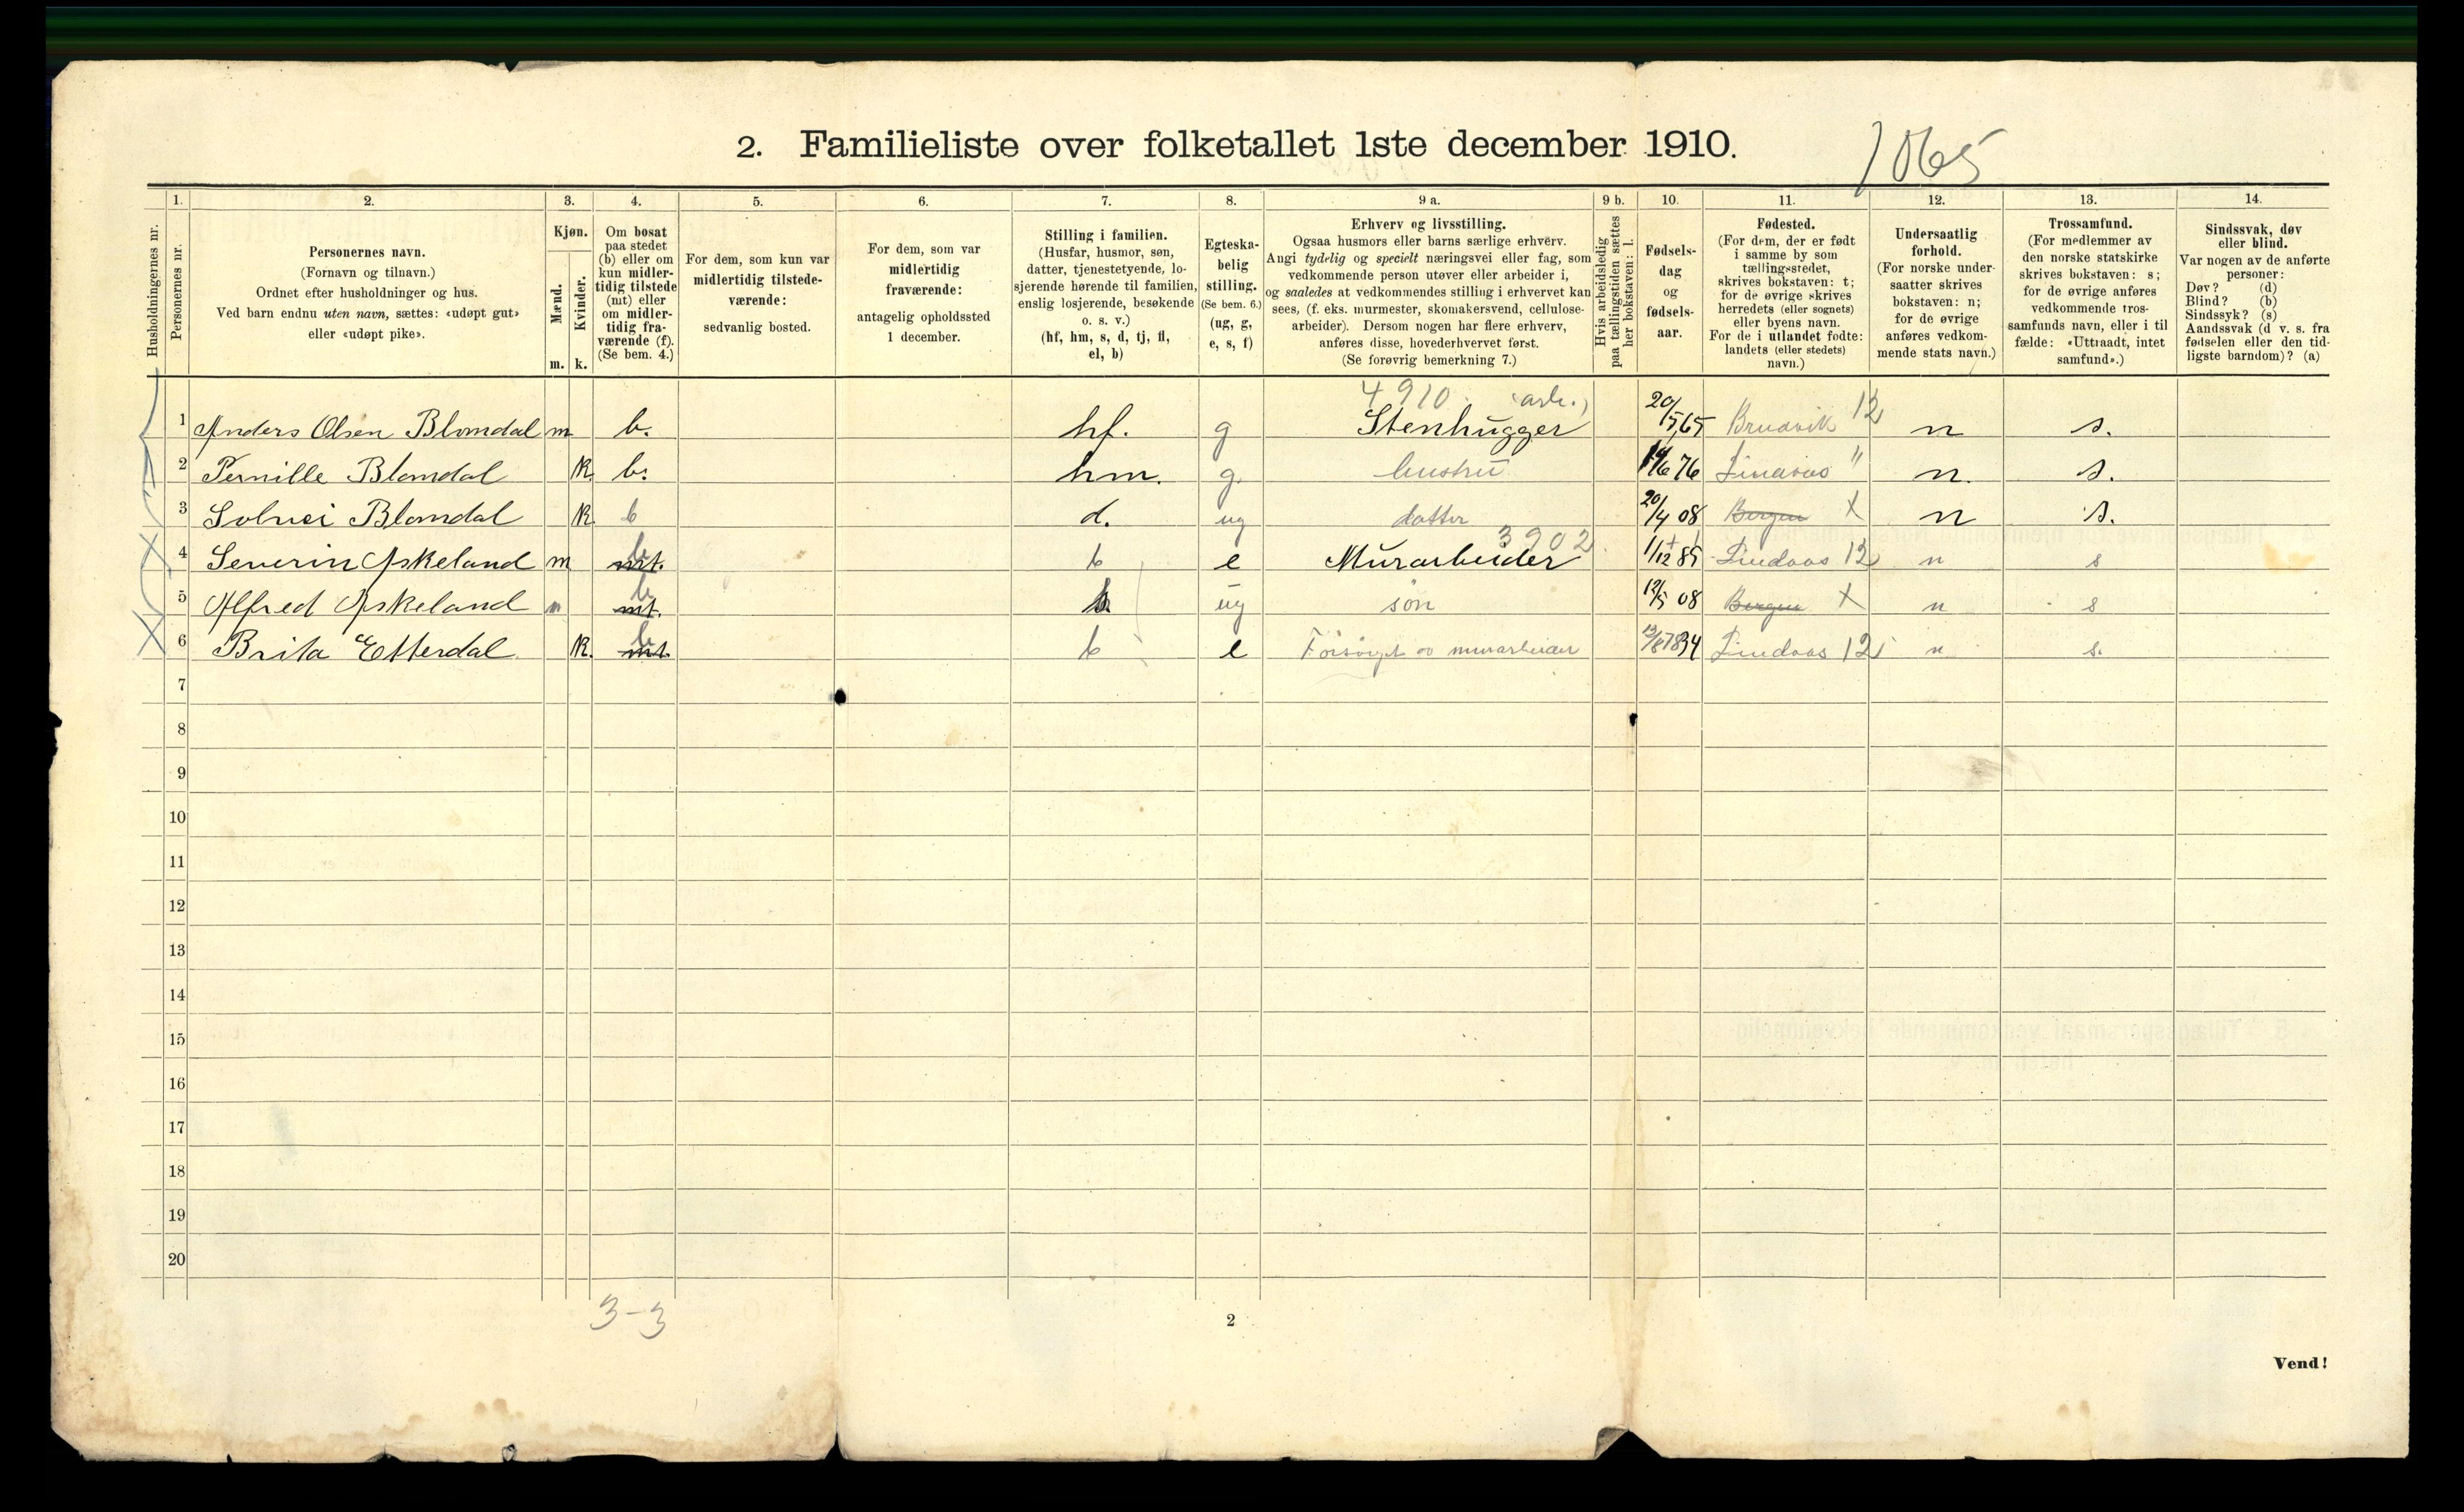 2. Familieliste over folketallet 1ste december 1910.
1065
Husholdningernes nr.
1. Personernes nr.
2. Personernes navn. (Fornavn og tilnavn.) Ordnet efter husholdninger og hus. Ved barn endnu uten navn, sættes: «udøpt gut» eller «udøpt pike».
3. Kjøn. Mænd. m. Kvinder. k.
4. Om bosat paa stedet (b) eller om kun midlertidig tilstede (mt) eller om midlertidig fraværende (f). (Se bem. 4.)
5. For dem, som kun var midlertidig tilstedeværende: sedvanlig bosted.
6. For dem, som var midlertidig fraværende: antagelig opholdssted 1 december.
7. Stilling i familien. (Husfar, husmor, søn, datter, tjenestetyende, losjerende hørende til familien, enslig losjerende, besøkende o. s. v.) (hf, hm, s, d, tj, fl, el, b)
8. Egteskabelig stilling. (Se bem. 6.) (ug, g, e, s, f)
9 a. Erhverv og livsstilling. Ogsaa husmors eller barns særlige erhverv. Angi tydelig og specielt næringsvei eller fag, som vedkommende person utøver eller arbeider i, og saaledes at vedkommendes stilling i erhvervet kan sees, (f. eks. murmester, skomakersvend, cellulosearbeider). Dersom nogen har flere erhverv, anføres disse, hovederhvervet først. (Se forøvrig bemerkning 7.)
9 b. Hvis arbeidsledig paa tællingstiden sættes her bokstaven: l.
10. Fødselsdag og fødselsaar.
11. Fødested. (For dem, der er født i samme by som tællingsstedet, skrives bokstaven: t; for de øvrige skrives herredets (eller sognets) eller byens navn. For de i utlandet fødte: landets (eller stedets) navn.)
12. Undersaatlig forhold. (For norske undersaatter skrives bokstaven: n; for de øvrige anføres vedkommende stats navn.)
13. Trossamfund. (For medlemmer av den norske statskirke skrives bokstaven: s; for de øvrige anføres vedkommende trossamfunds navn, eller i tilfælde: «Uttraadt, intet samfund».)
14. Sindssvak, døv eller blind. Var nogen av de anførte personer: Døv? (d) Blind? (b) Sindssyk? (s) Aandssvak (d v. s. fra fødselen eller den tidligste barndom)? (a)
4910. (arb.)
1 Anders Olsen Blomdal m b. hf. g Stenhugger 20/5 65 Bruavik 12 n s.
2 Pernille Blomdal k b. hm. g. hustru 14/6 76 Lindaas " n. s.
3 Solvei Blomdal k b d. ug datter 20/4 08 Bergen X n s.
3902
4 Severin Askeland m mt. b b e Murarbeider 1/12 85 Lindaas 12 n s
5 Alfred Askeland m mt. b b ug søn 12/5 08 Bergen X n s
6 Brita Etterdal k. mt. b b e Forsørget av murarbeider 13/8 1834 Lindaas 12 n s.
7
8
9
10
11
12
13
14
15
16
17
18
19
20
3-3
2
Vend!